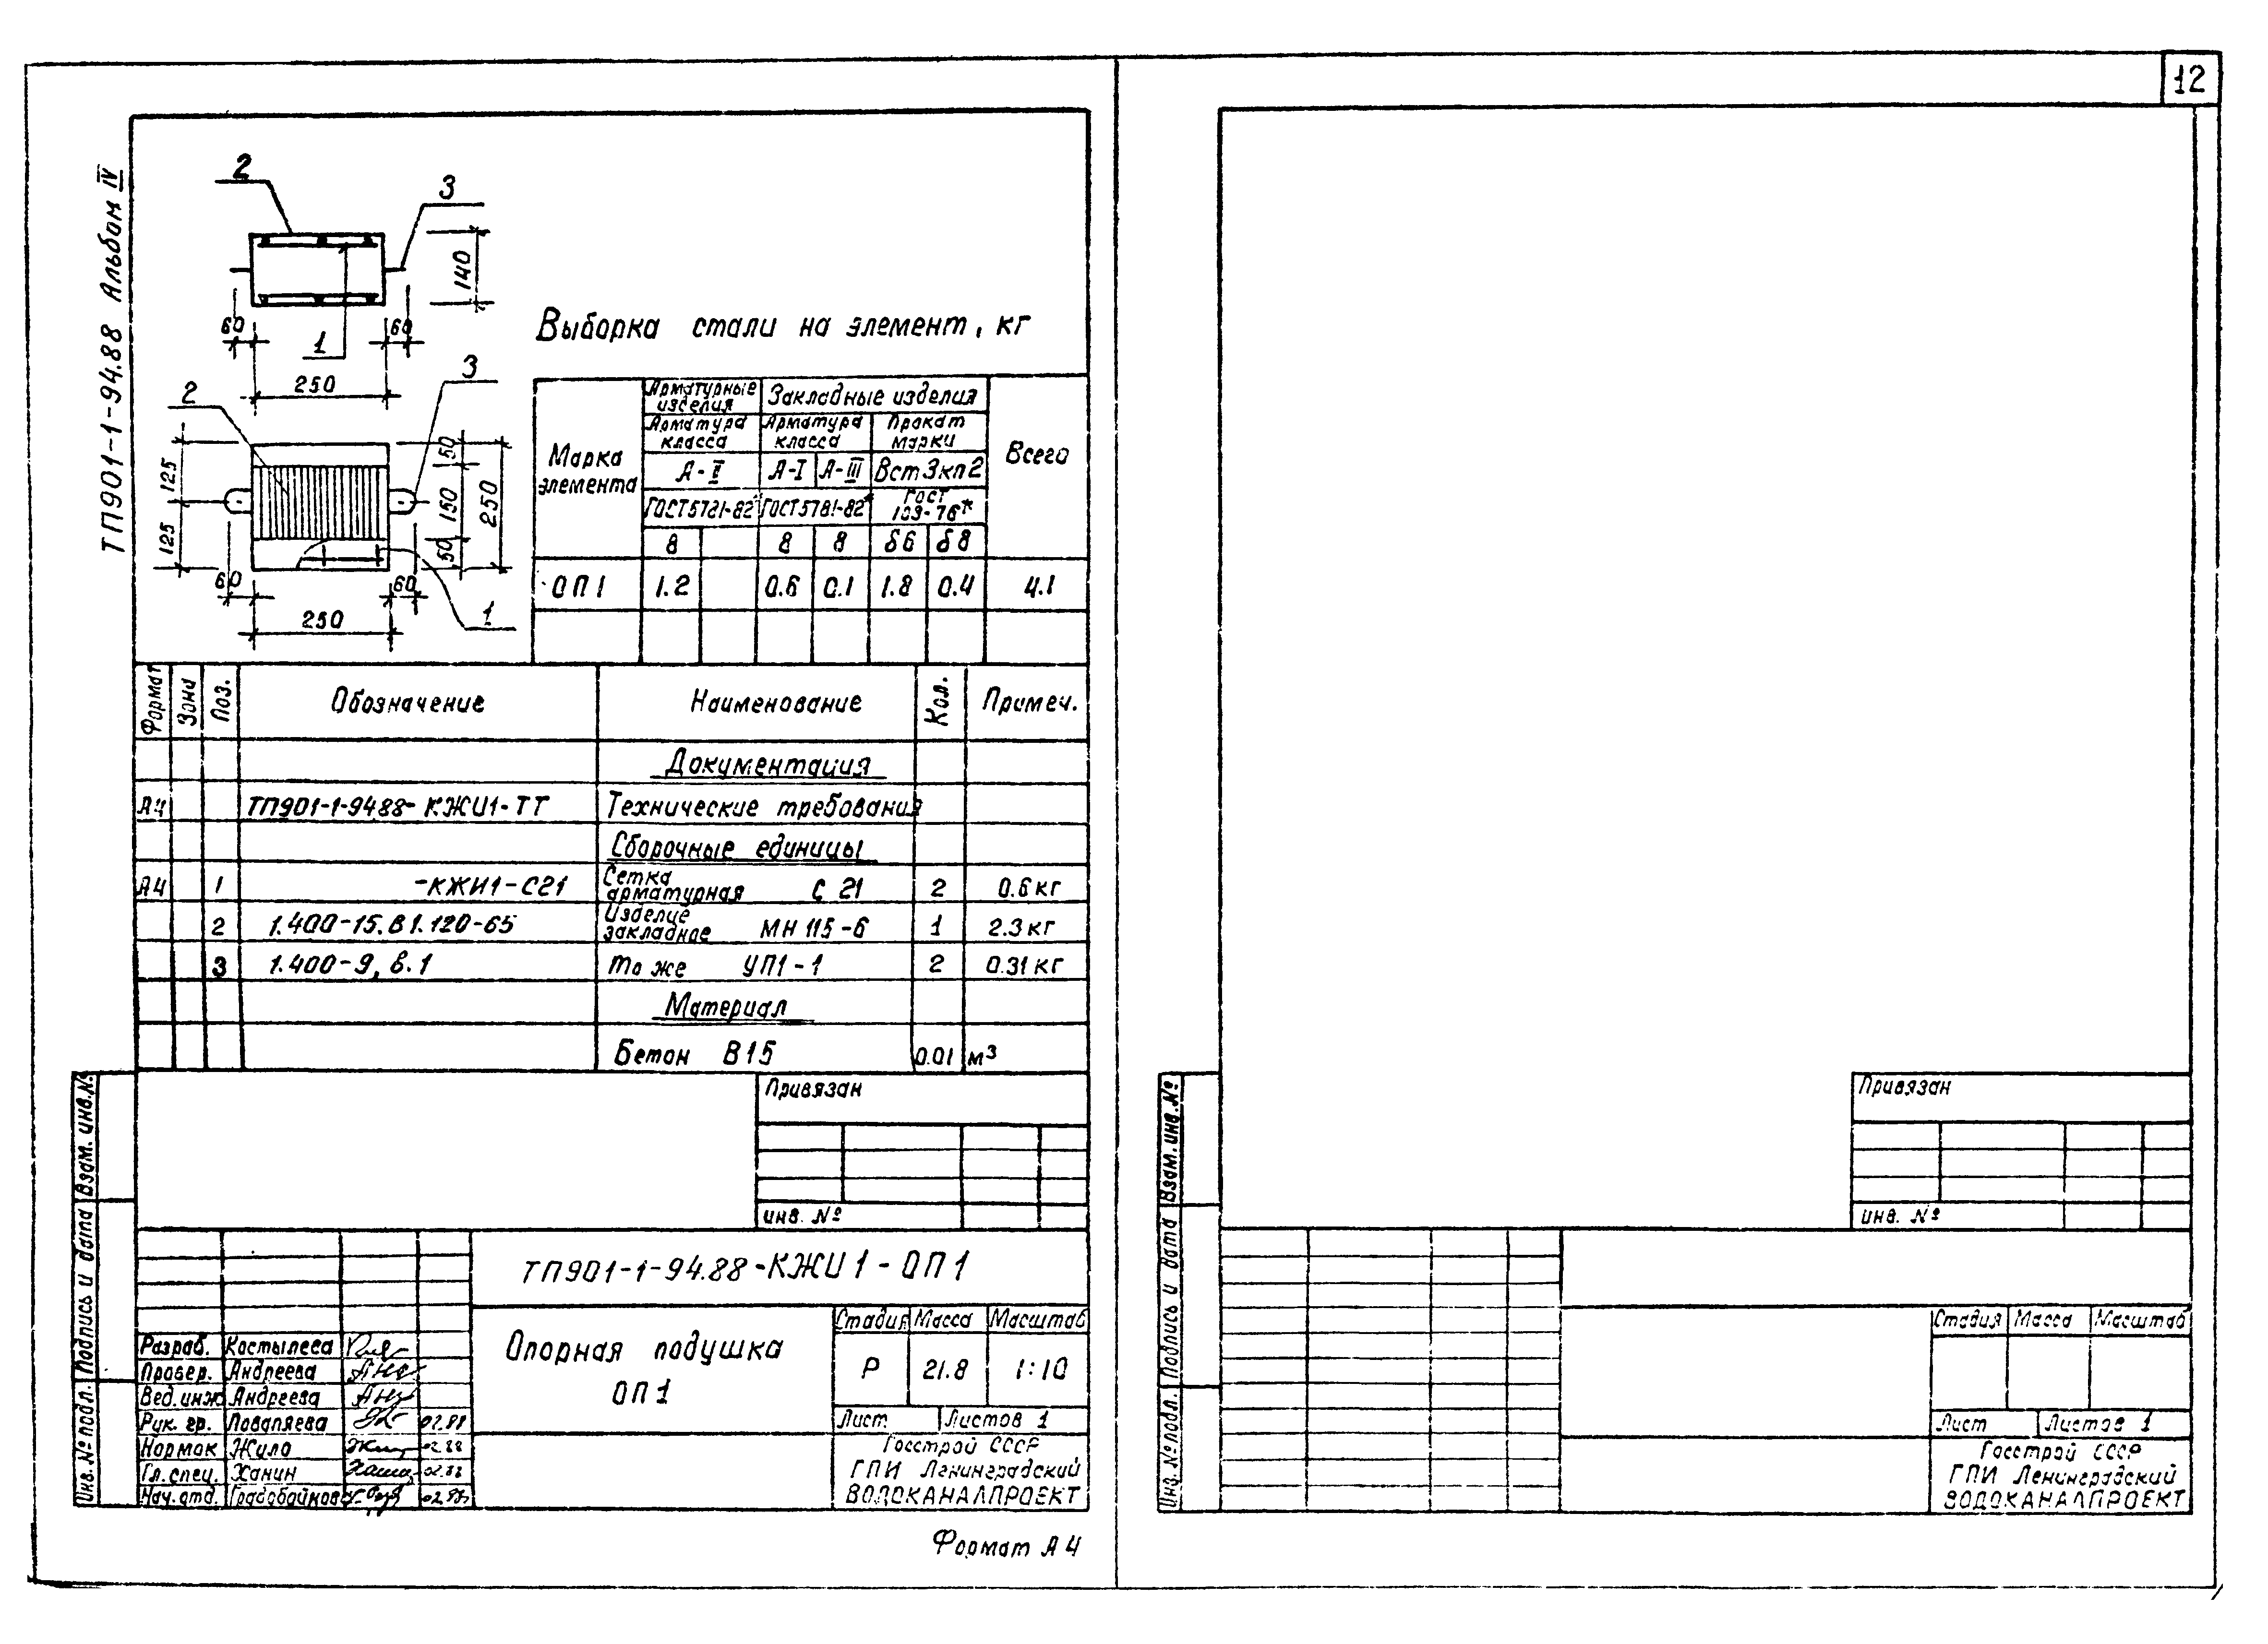 12
ТП901-1-94.88 Альбом IV
2
3
140
60
60
1
250
2
3
125
125
50
150
50
250
60
60
250
1
Выборка стали на элемент, кг
Марка элемента
Арматурные изделия
Закладные изделия
Всего
Арматура класса
Арматура класса
Прокат марки
А-I
А-III
Вст3кп2
ГОСТ5781-82*
ГОСТ5781-82*
ГОСТ 103-76*
8
8
8
δ6
δ8
ОП1
1.2
0.6
0.1
1.8
0.4
4.1
Формат
Зона
Поз.
Обозначение
Наименование
Кол.
Примеч.
Документация
А4
ТП901-1-9488-КЖИ1-ТТ
Технические требования
Сборочные единицы
А4
1
-КЖИ1-С21
Сетка арматурная С 21
2
0.6 кг
2
1.400-15.В1.120-65
Изделие закладное МН 115-6
1
2.3 кг
3
1.400-9, в.1
То же УП1-1
2
0.31 кг
Материал
Бетон В15
0.01
м³
Привязан
инв. №
Взам. инв.№
Подпись и дата
Инв. № подл.
ТП901-1-94.88-КЖИ1-ОП1
Разраб. Костылева
Провер. Андреева
Вед.инж Андреева
Рук. гр. 02.88
Нормок Жило 02.88
Гл.спец. Ханин 02.88
Нач.отд. 02.88
Опорная подушка
ОП1
Стадия
Масса
Масштаб
Р
21.8
1:10
Лист
Листов 1
Госстрой СССР
ГПИ Ленинградский
ВОДОКАНАЛПРОЕКТ
Формат А4
Привязан
инв. №
Взам. инв.№
Подпись и дата
Инв. № подл.
Стадия
Масса
Масштаб
Лист
Листов 1
Госстрой СССР
ГПИ Ленинградский
ВОДОКАНАЛПРОЕКТ